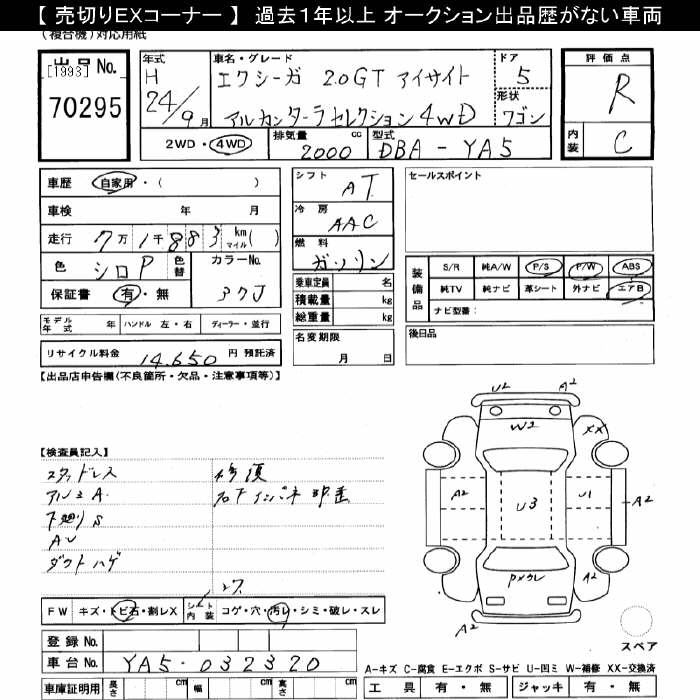 【 売切りEXコーナー 】 過去1年以上 オークション出品歴がない車両
(複合機)対応用紙
出品 No.
[1993]
70295
年式 H 24/9月
車名・グレード
エクシーガ 2.0GT アイサイト
アルカンターラセレクション4WD
ドア 5
形状 ワゴン
評価点 R
内装 C
2WD・4WD
排気量 2000 cc
型式 DBA-YA5
車歴 自家用・( )
車検 年 月
走行 7万1千883 km マイル( )
色 シロP 色替 カラーNo. 37J
保証書 有・無
モデル年式 年 ハンドル 左・右 ディーラー・並行
リサイクル料金 14,650 円 預託済
シフト AT
冷房 AAC
燃料 ガソリン
乗車定員 名
積載量 kg
総重量 kg
名変期限 月 日
セールスポイント
装備品 S/R 純A/W P/S P/W ABS
純TV 純ナビ 革シート 外ナビ エアB
ナビ型番:
後日品
【出品店申告欄(不良箇所・欠品・注意事項等)】
【検査員記入】
スタッドレス
アルミA
下廻りS
AU
ダクトハゲ
修復
右インパネ
U2 A2
W2 XX
A2 U3 U1 A2
A2
A2
スペア
FW キズ・トビ石・割レX シート内装 コゲ・穴・汚レ・シミ・破レ・スレ
登録 No.
車台 No. YA5-032320
車庫証明用 長さ cm 幅 cm 高さ cm
A-キズ C-腐食 E-エクボ S-サビ U-凹ミ W-補修 XX-交換済
工具 有・無 ジャッキ 有・無